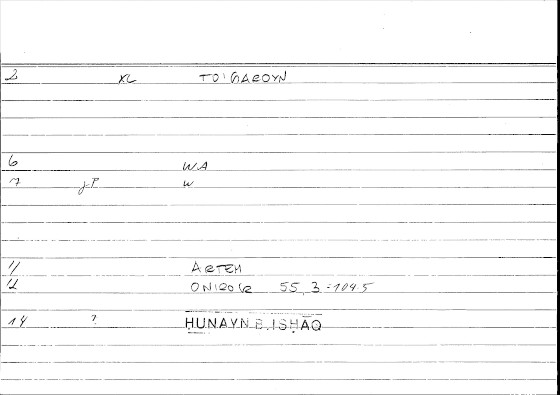 2 XL TO! GAROYN
6 WA
7 w
11 ARTEM
12 ONIROCR 55, 3-1045
14 ? ḤUNAYN B. ISḤĀQ